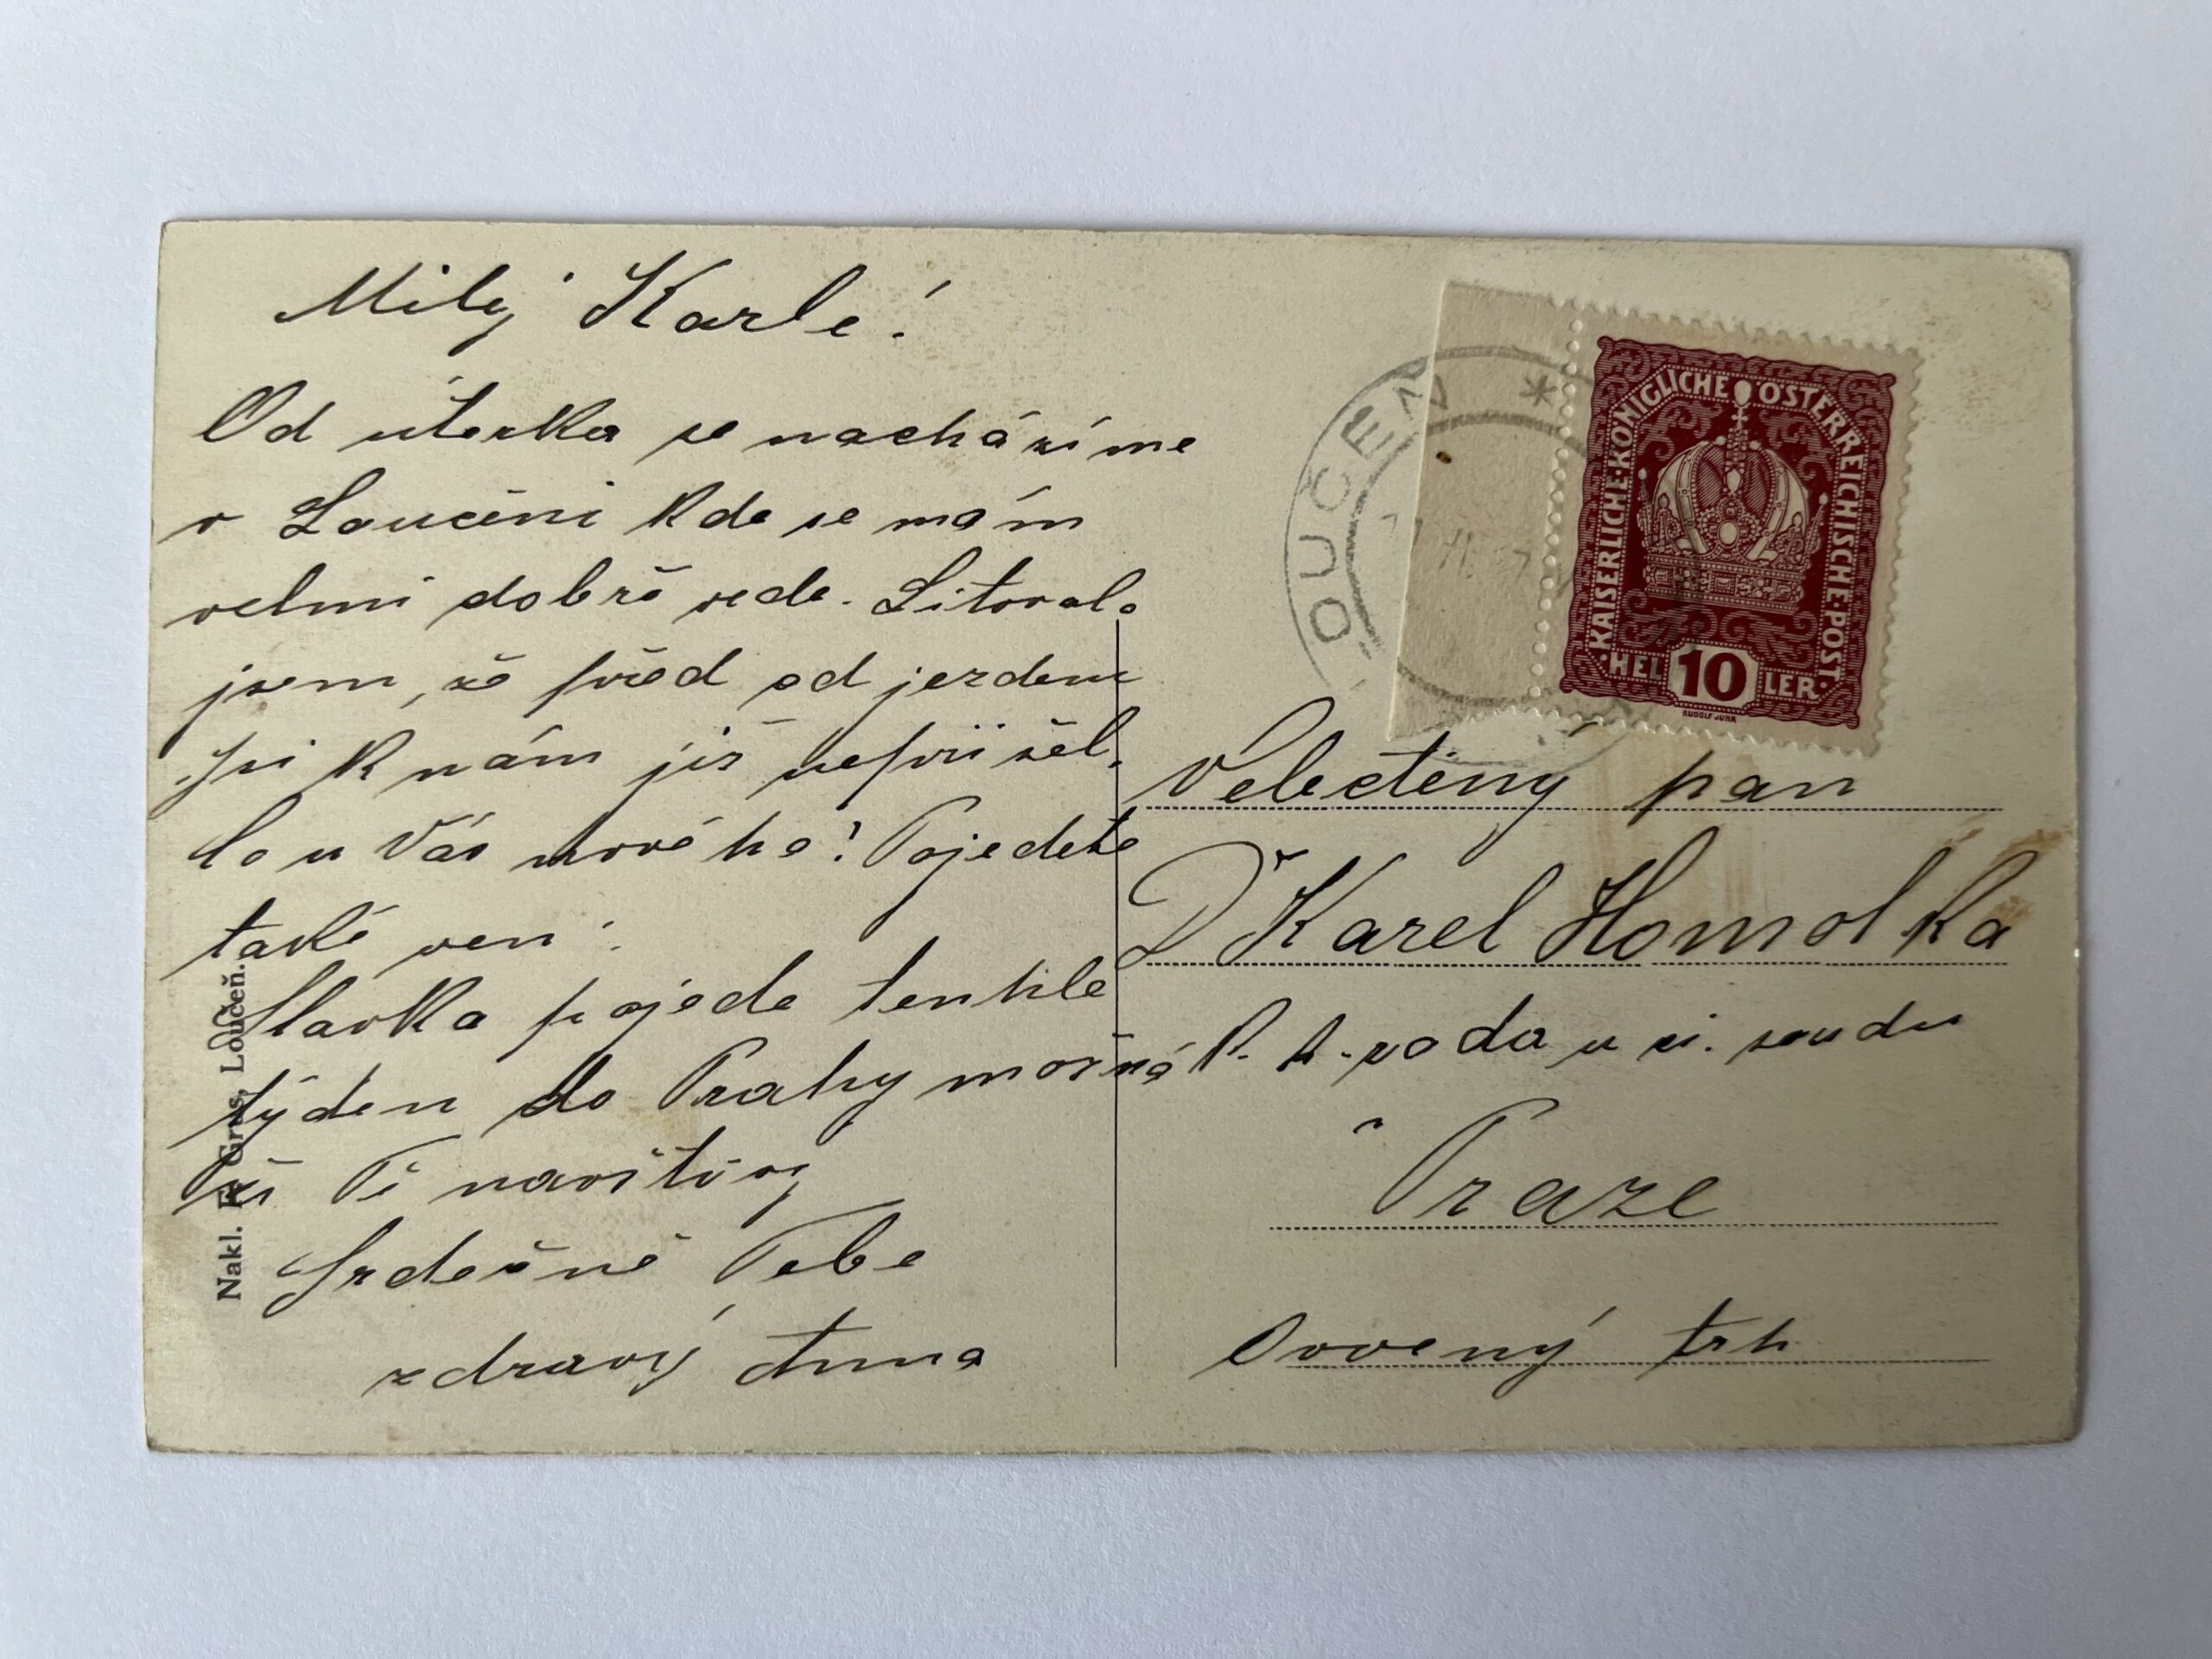 Milý Karle!
Od úterka se nacházíme
v Loučeni kde se mám
velmi dobře vede. Litovala
jsem, že před odjezdem
jsi k nám již nepřišel.
Co u Vás nového? Pojedete
také ven?
Slavka pojede tenhle
týden do Prahy možná
že Tě navštíví
Srdečně Tebe
zdraví Anna
Nakl. Fr. Grus, Loučeň.
LOUČEŇ *
KAISERLICHE·KÖNIGLICHE ÖSTERREICHISCHE·POST
HELLER 10
RUDOLF JUNK
Velectěný pan
Dr Karel Homolka
rada u zem. soudu
v Praze
Ovocný trh